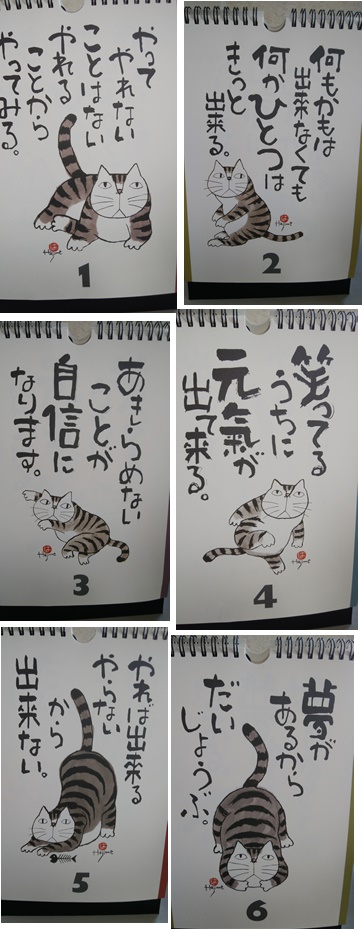 やって
やれない
ことはない
やれる
ことから
やってみる。
Hajime
1
何もかもは
出来なくても
何かひとつは
きっと
出来る。
Hajime
2
あきらめない
ことが
自信に
なります。
Hajime
3
笑ってる
うちに
元氣が
出て来る。
Hajime
4
やれば出来る
やらない
から
出来ない。
Hajime
5
夢が
あるから
だい
じょうぶ。
Hajime
6